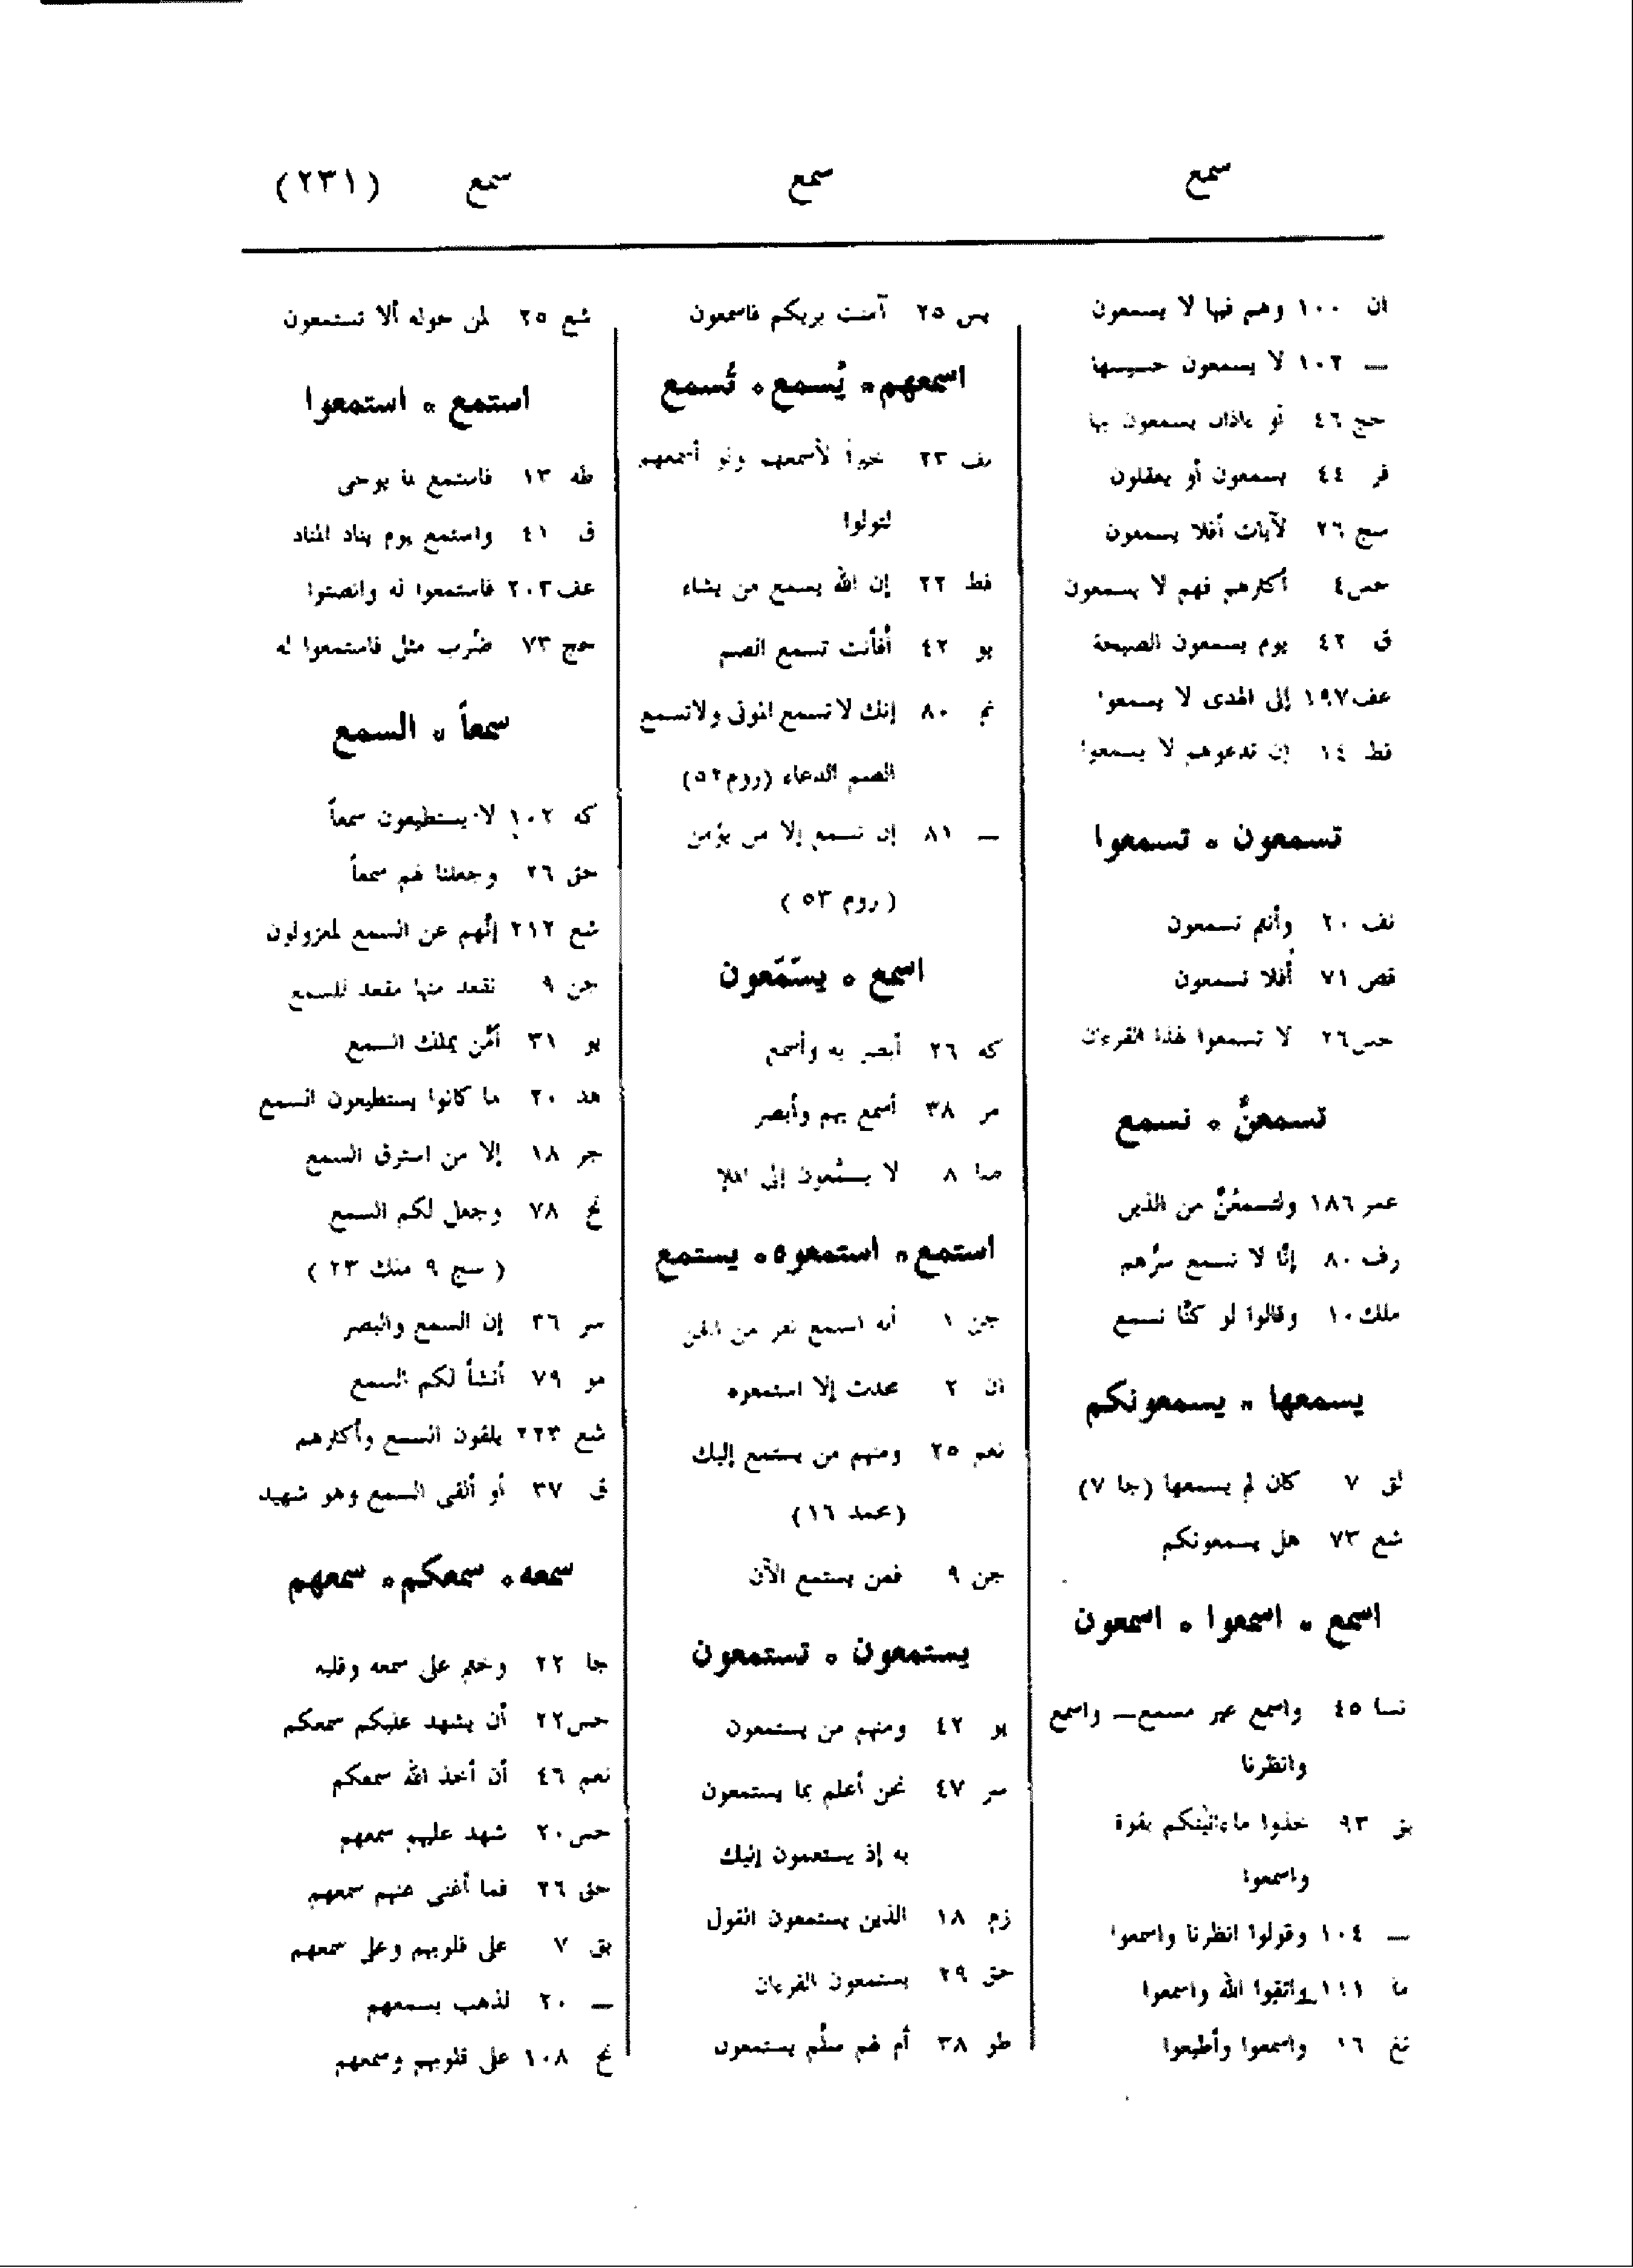 سمع
سمع
سمع (٢٣١)
ان ١٠٠ وهم فيها لا يسمعون
— ١٠٢ لا يسمعون حسيسها
حج ٤٦ أو ءاذان يسمعون بها
فر ٤٤ يسمعون أو يعقلون
سج ٢٦ لآيات أفلا يسمعون
حس ٤ أكثرهم فهم لا يسمعون
ق ٤٢ يوم يسمعون الصيحة
عف ١٩٧ إلى الهدى لا يسمعوا
فط ١٤ إن تدعوهم لا يسمعوا
تسمعون ٥ تسمعوا
نف ٢٠ وأنتم تسمعون
قص ٧١ أفلا تسمعون
حس ٢٦ لا تسمعوا لهذا القرءان
تسمعنّ ٥ نسمع
عمر ١٨٦ ولتسمعُنّ من الذين
رف ٨٠ إنّا لا نسمع سرّهم
ملك ١٠ وقالوا لو كنّا نسمع
يسمعها ٥ يسمعونكم
لق ٧ كان لم يسمعها (جا ٧)
شع ٧٣ هل يسمعونكم
اسمع ٥ اسمعوا ٥ اسمعون
نسا ٤٥ واسمع غير مسمع — واسمع
وانظرنا
بق ٩٣ خذوا ماءاتينكم بقوة
واسمعوا
— ١٠٤ وقولوا انظرنا واسمعوا
ما ١١١ واتقوا الله واسمعوا
تغ ١٦ واسمعوا وأطيعوا
يس ٢٥ آمنت بربكم فاسمعون
اسمعهم ٥ يُسمع ٥ تُسمع
نف ٢٣ خيراً لأسمعهم ولو أسمعهم
لتولوا
فط ٢٢ إن الله يسمع من يشاء
يو ٤٢ أفأنت تسمع الصم
نم ٨٠ إنك لا تسمع الموتى ولا تسمع
الصم الدعاء (روم ٥٢)
— ٨١ إن تسمع إلا من يؤمن
(روم ٥٣)
اسمع ٥ يسّمّعون
كه ٢٦ أبصر به وأسمع
مر ٣٨ أسمع بهم وأبصر
صا ٨ لا يسّمّعون إلى الملإ
استمع ٥ استمعوه ٥ يستمع
جن ١ أنه استمع نفر من الجن
ان ٢ محدث إلا استمعوه
نعم ٢٥ ومنهم من يستمع إليك
(محمد ١٦)
جن ٩ فمن يستمع الآن
يستمعون ٥ تستمعون
يو ٤٢ ومنهم من يستمعون
سر ٤٧ نحن أعلم بما يستمعون
به إذ يستمعون إليك
زم ١٨ الذين يستمعون القول
حق ٢٩ يستمعون القرءان
طو ٣٨ أم لهم سلّم يستمعون
شع ٢٥ لمن حوله ألا تستمعون
استمع ٥ استمعوا
طه ١٣ فاستمع لما يوحى
ق ٤١ واستمع يوم يناد المناد
عف ٢٠٣ فاستمعوا له وانصتوا
حج ٧٣ ضُرب مثل فاستمعوا له
سمعاً ٥ السمع
كه ١٠٢ لا يستطيعون سمعاً
حق ٢٦ وجعلنا لهم سمعاً
شع ٢١٢ إنّهم عن السمع لمعزولون
جن ٩ نقعد منها مقعد للسمع
يو ٣١ أمّن يملك السمع
هد ٢٠ ما كانوا يستطيعون السمع
جر ١٨ إلا من استرق السمع
نح ٧٨ وجعل لكم السمع
(سج ٩ ملك ٢٣)
سر ٣٦ إن السمع والبصر
مو ٧٩ أنشأ لكم السمع
شع ٢٢٣ يلقون السمع وأكثرهم
ق ٣٧ أو ألقى السمع وهو شهيد
سمعه ٥ سمعكم ٥ سمعهم
جا ٢٢ وختم على سمعه وقلبه
حس ٢٢ أن يشهد عليكم سمعكم
نعم ٤٦ أن أخذ الله سمعكم
حس ٢٠ شهد عليهم سمعهم
حق ٢٦ فما أغنى عنهم سمعهم
بق ٧ على قلوبهم وعلى سمعهم
— ٢٠ لذهب بسمعهم
نح ١٠٨ على قلوبهم وسمعهم